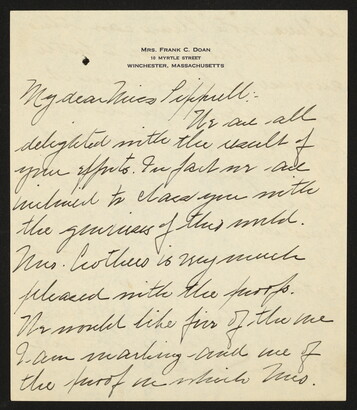 MRS. FRANK C. DOAN
15 MYRTLE STREET
WINCHESTER, MASSACHUSETTS
My dear Miss Pippell:-
We are all
delighted with the result of
your efforts. In fact we are
inclined to class you with
the geniuses of this world.
Mrs. Crothers is very much
pleased with the proofs.
We would like five of the one
I am marking and one of
the proof in which Mrs.